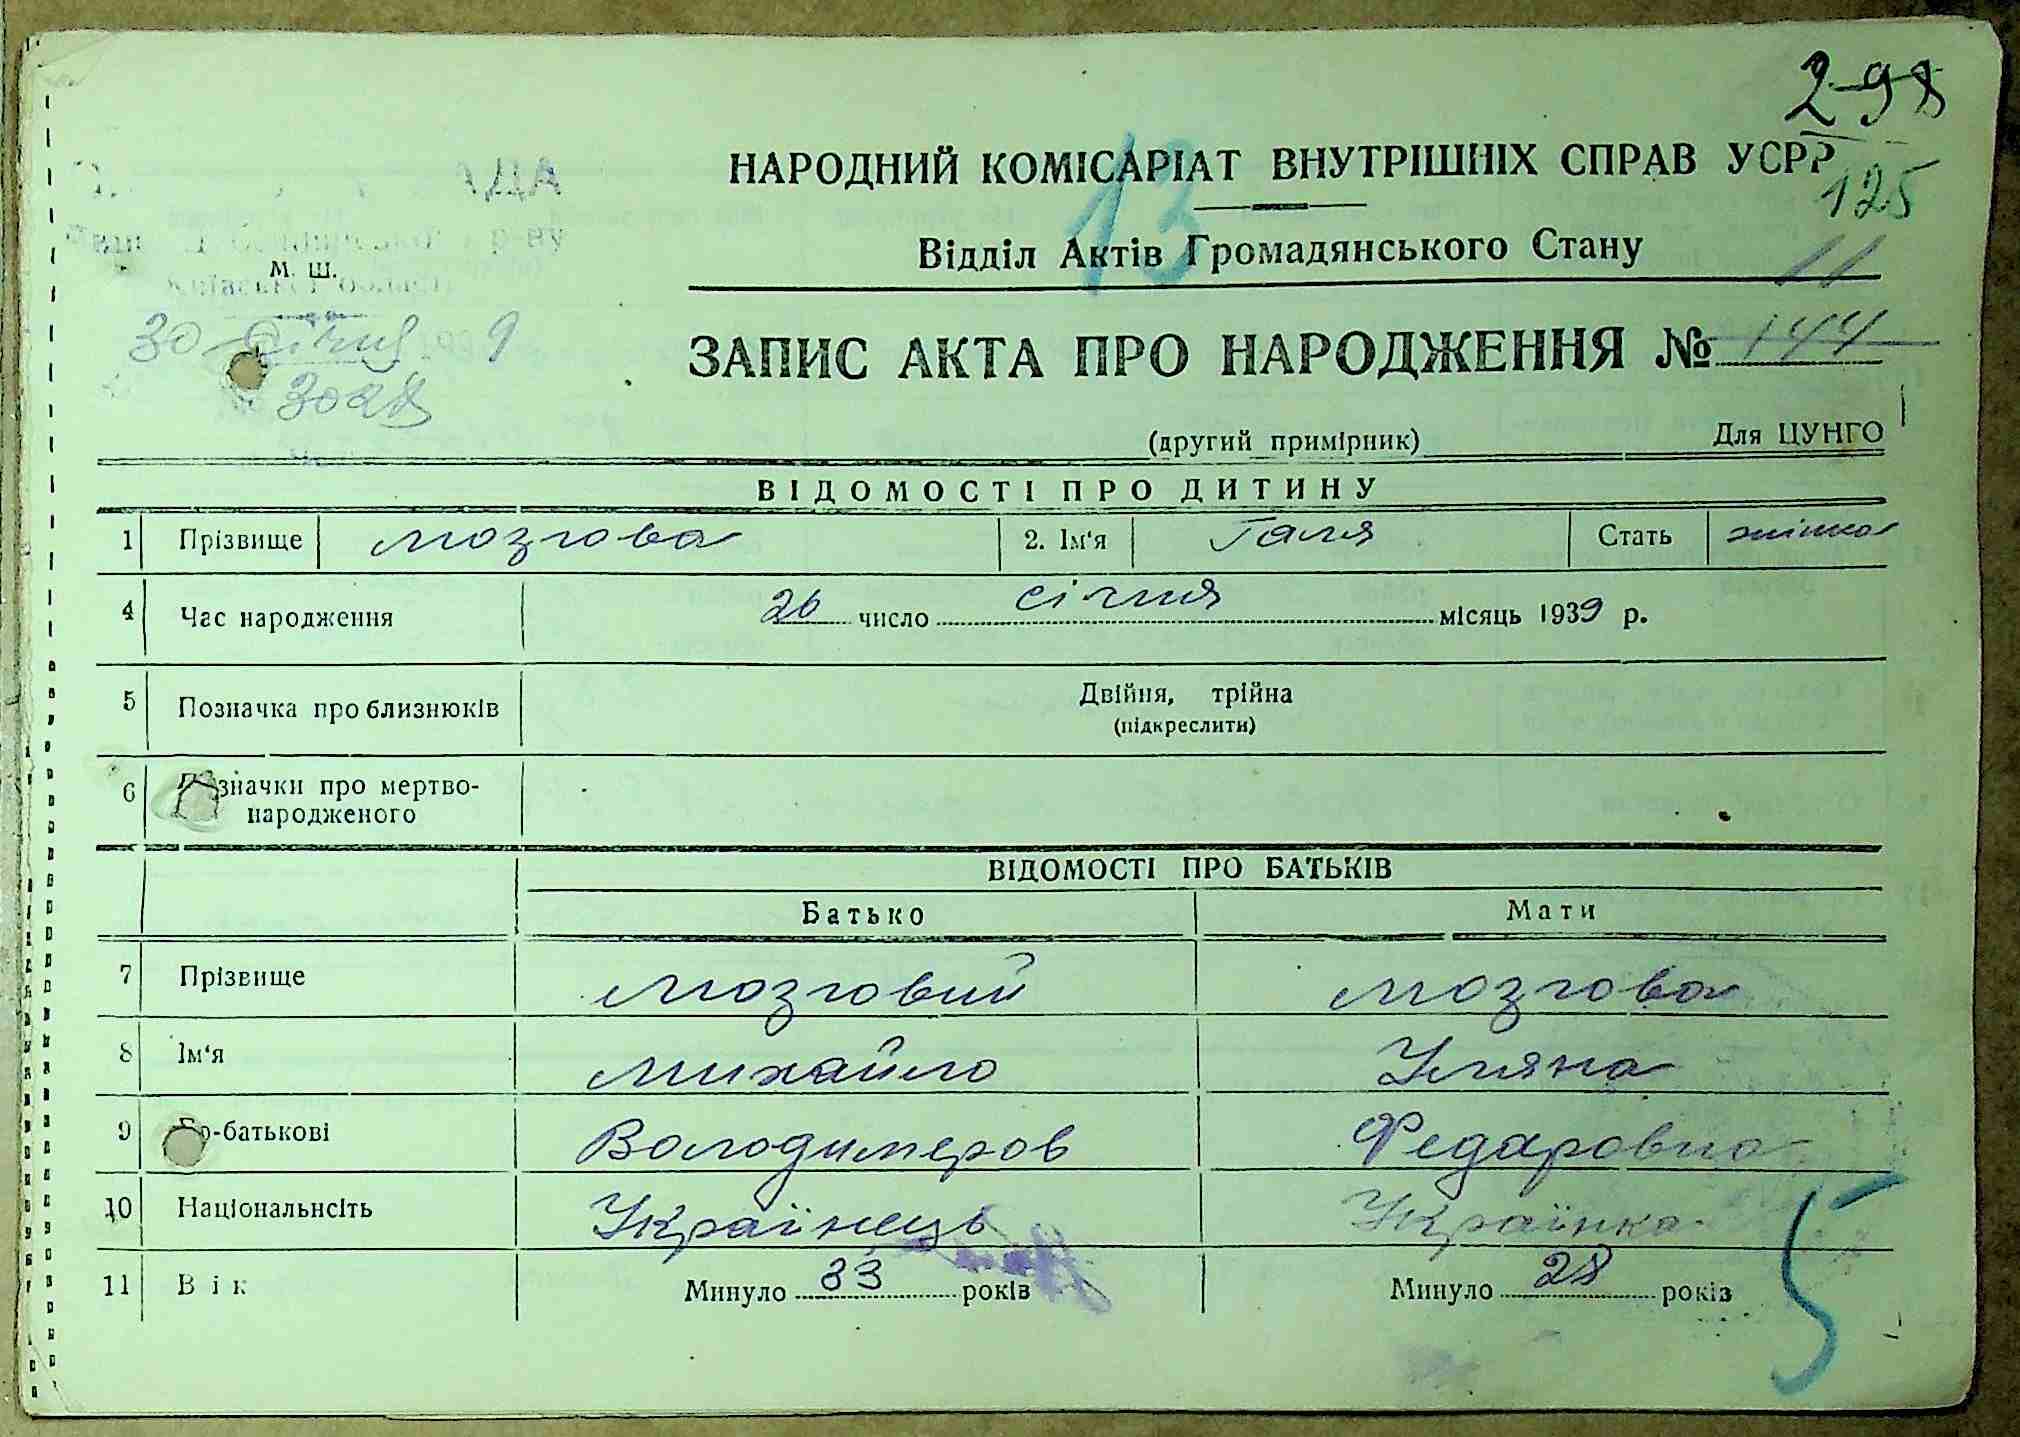 298
НАРОДНИЙ КОМІСАРІАТ ВНУТРІШНІХ СПРАВ УСРР
125
13
Відділ Актів Громадянського Стану
11
М. Ш.
Київської області
30 січня 1939
ЗАПИС АКТА ПРО НАРОДЖЕННЯ № 144
(другий примірник) Для ЦУНГО
ВІДОМОСТІ ПРО ДИТИНУ
1 Прізвище Мозгова 2. Ім'я Галя Стать жінка
4 Час народження 26 число січня місяць 1939 р.
5 Позначка про близнюків Двійня, трійна
(підкреслити)
6 Позначки про мертво-
народженого
ВІДОМОСТІ ПРО БАТЬКІВ
Батько Мати
7 Прізвище Мозговий Мозгова
8 Ім'я Михайло Уляна
9 По-батькові Володимеров Федаровна
10 Національнсіть Українець Українка
11 Вік Минуло 33 років Минуло 28 років
5